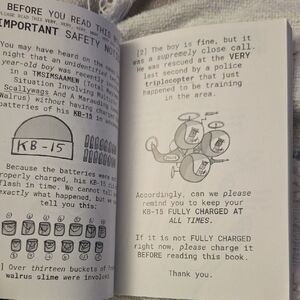 BEFORE YOU READ THIS B
PLEASE READ THIS VERY, VERY, VERY, VERY, VERY
IMPORTANT SAFETY NOT
You may have heard on the news
night that an unidentified
year-old boy was recently
in a TMSIMSAAMEN (Total
Situation Involving M
Scallywags And A Marauding
Walrus) without having charged
batteries of his KB-15 in
KB-15
Because the batteries were not
properly charged, his KB-15
flash in time. We cannot tell
exactly what happened, but we
tell you this:
] Over thirteen buckets of
walrus slime were involved.
[2] The boy is fine, but it
was a supremely close call.
He was rescued at the VERY
last second by a police
triplecopter that just
happened to be training
in the area.
Accordingly, can we please
remind you to keep your
KB-15 FULLY CHARGED AT
ALL TIMES.
If it is not FULLY CHARGED
right now, please charge it
BEFORE reading this book.
Thank you.